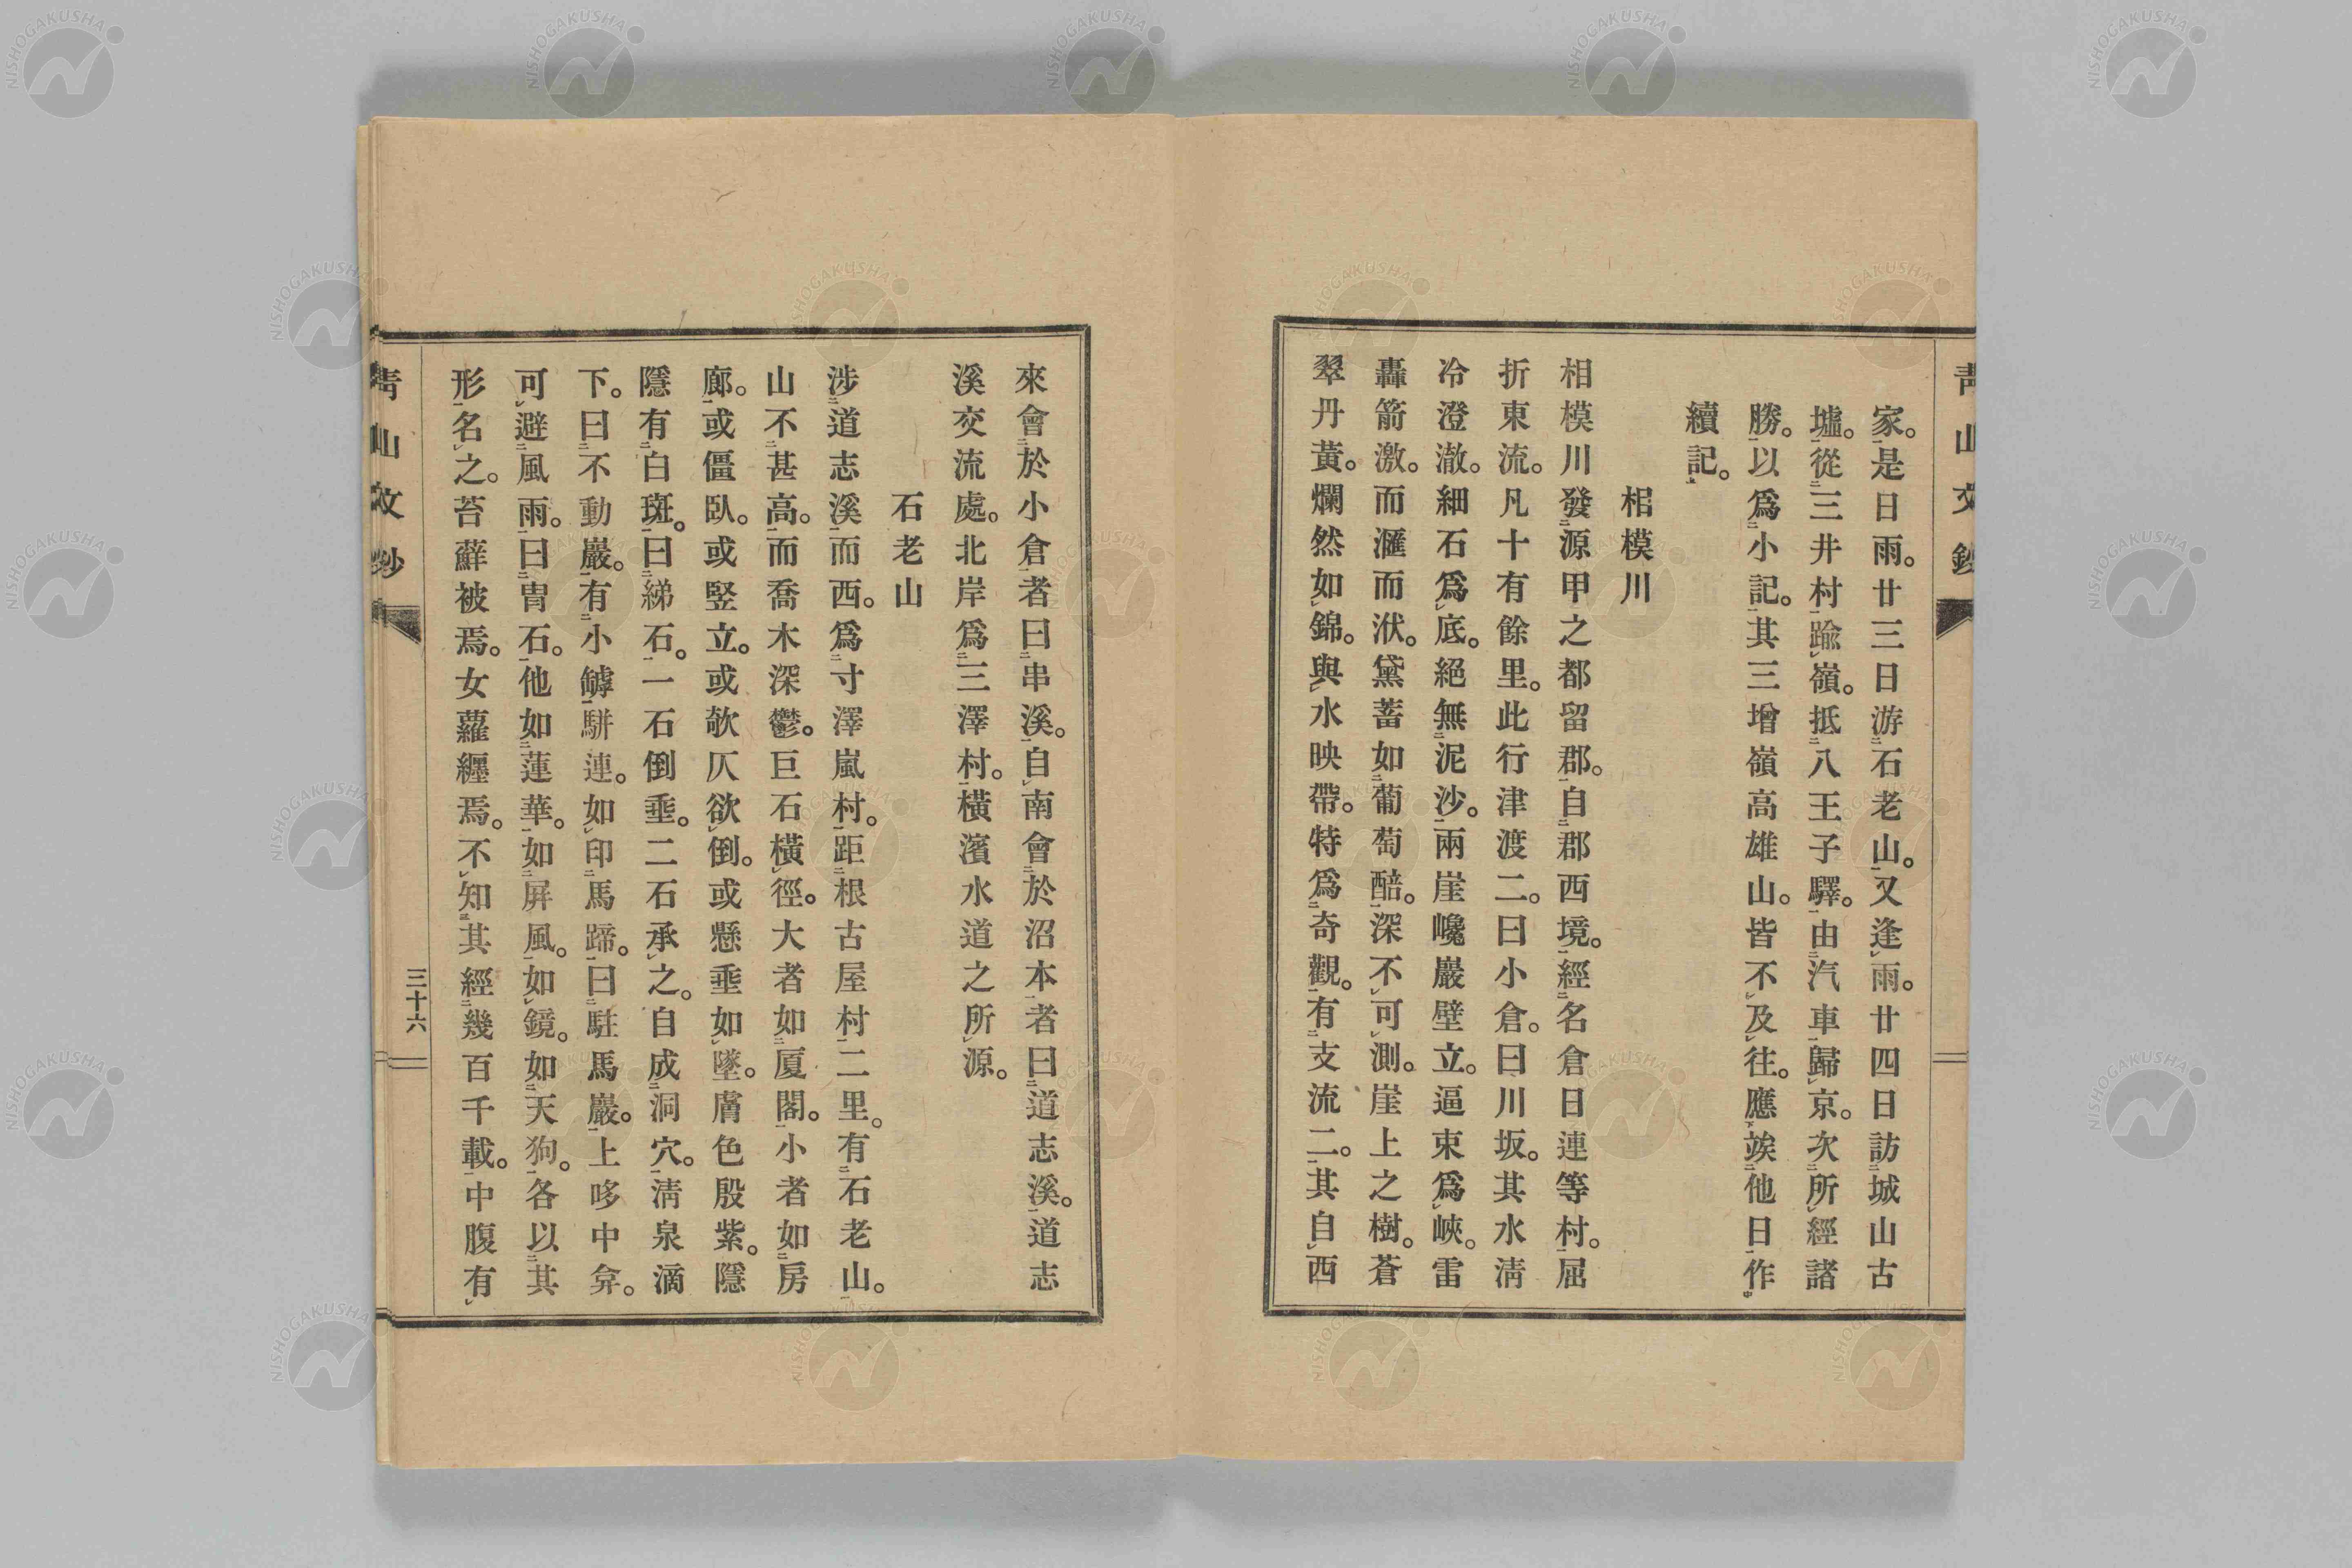 青山文鈔
家。是日雨。廿三日游石老山。又逢雨。廿四日訪城山古
墟。從三井村踰嶺。抵八王子驛。由汽車歸京。次所經諸
勝。以爲小記。其三增嶺高雄山。皆不及往。應竢他日作
續記。
相模川
相模川發源甲之都留郡。自郡西境。經名倉日連等村。屈
折東流。凡十有餘里。此行津渡二。曰小倉。曰川坂。其水淸
冷澄澈。細石爲底。絕無泥沙。兩崖巉巖壁立。逼束爲峽。雷
轟箭激。而滙而洑。黛蓄如葡萄醅。深不可測。崖上之樹。蒼
翠丹黃。爛然如錦。與水映帶。特爲奇觀。有支流二。其自西
來會於小倉者曰串溪。自南會於沼本者曰道志溪。道志
溪交流處。北岸爲三澤村。橫濱水道之所源。
石老山
涉道志溪而西。爲寸澤嵐村。距根古屋村二里。有石老山。
山不甚高。而喬木深鬱。巨石橫徑。大者如厦閣。小者如房
廊。或僵臥。或竪立。或欹仄欲倒。或懸垂如墜。膚色殷紫。隱
隱有白斑。曰綈石。一石倒垂。二石承之。自成洞穴。淸泉滴
下。曰不動巖。有小罅駢連。如印馬蹄。曰駐馬巖。上哆中弇。
可避風雨。曰冑石。他如蓮華。如屏風。如鏡。如天狗。各以其
形名之。苔蘚被焉。女蘿纒焉。不知其經幾百千載。中腹有
青山文鈔
三十六
NISHOGAKUSHA